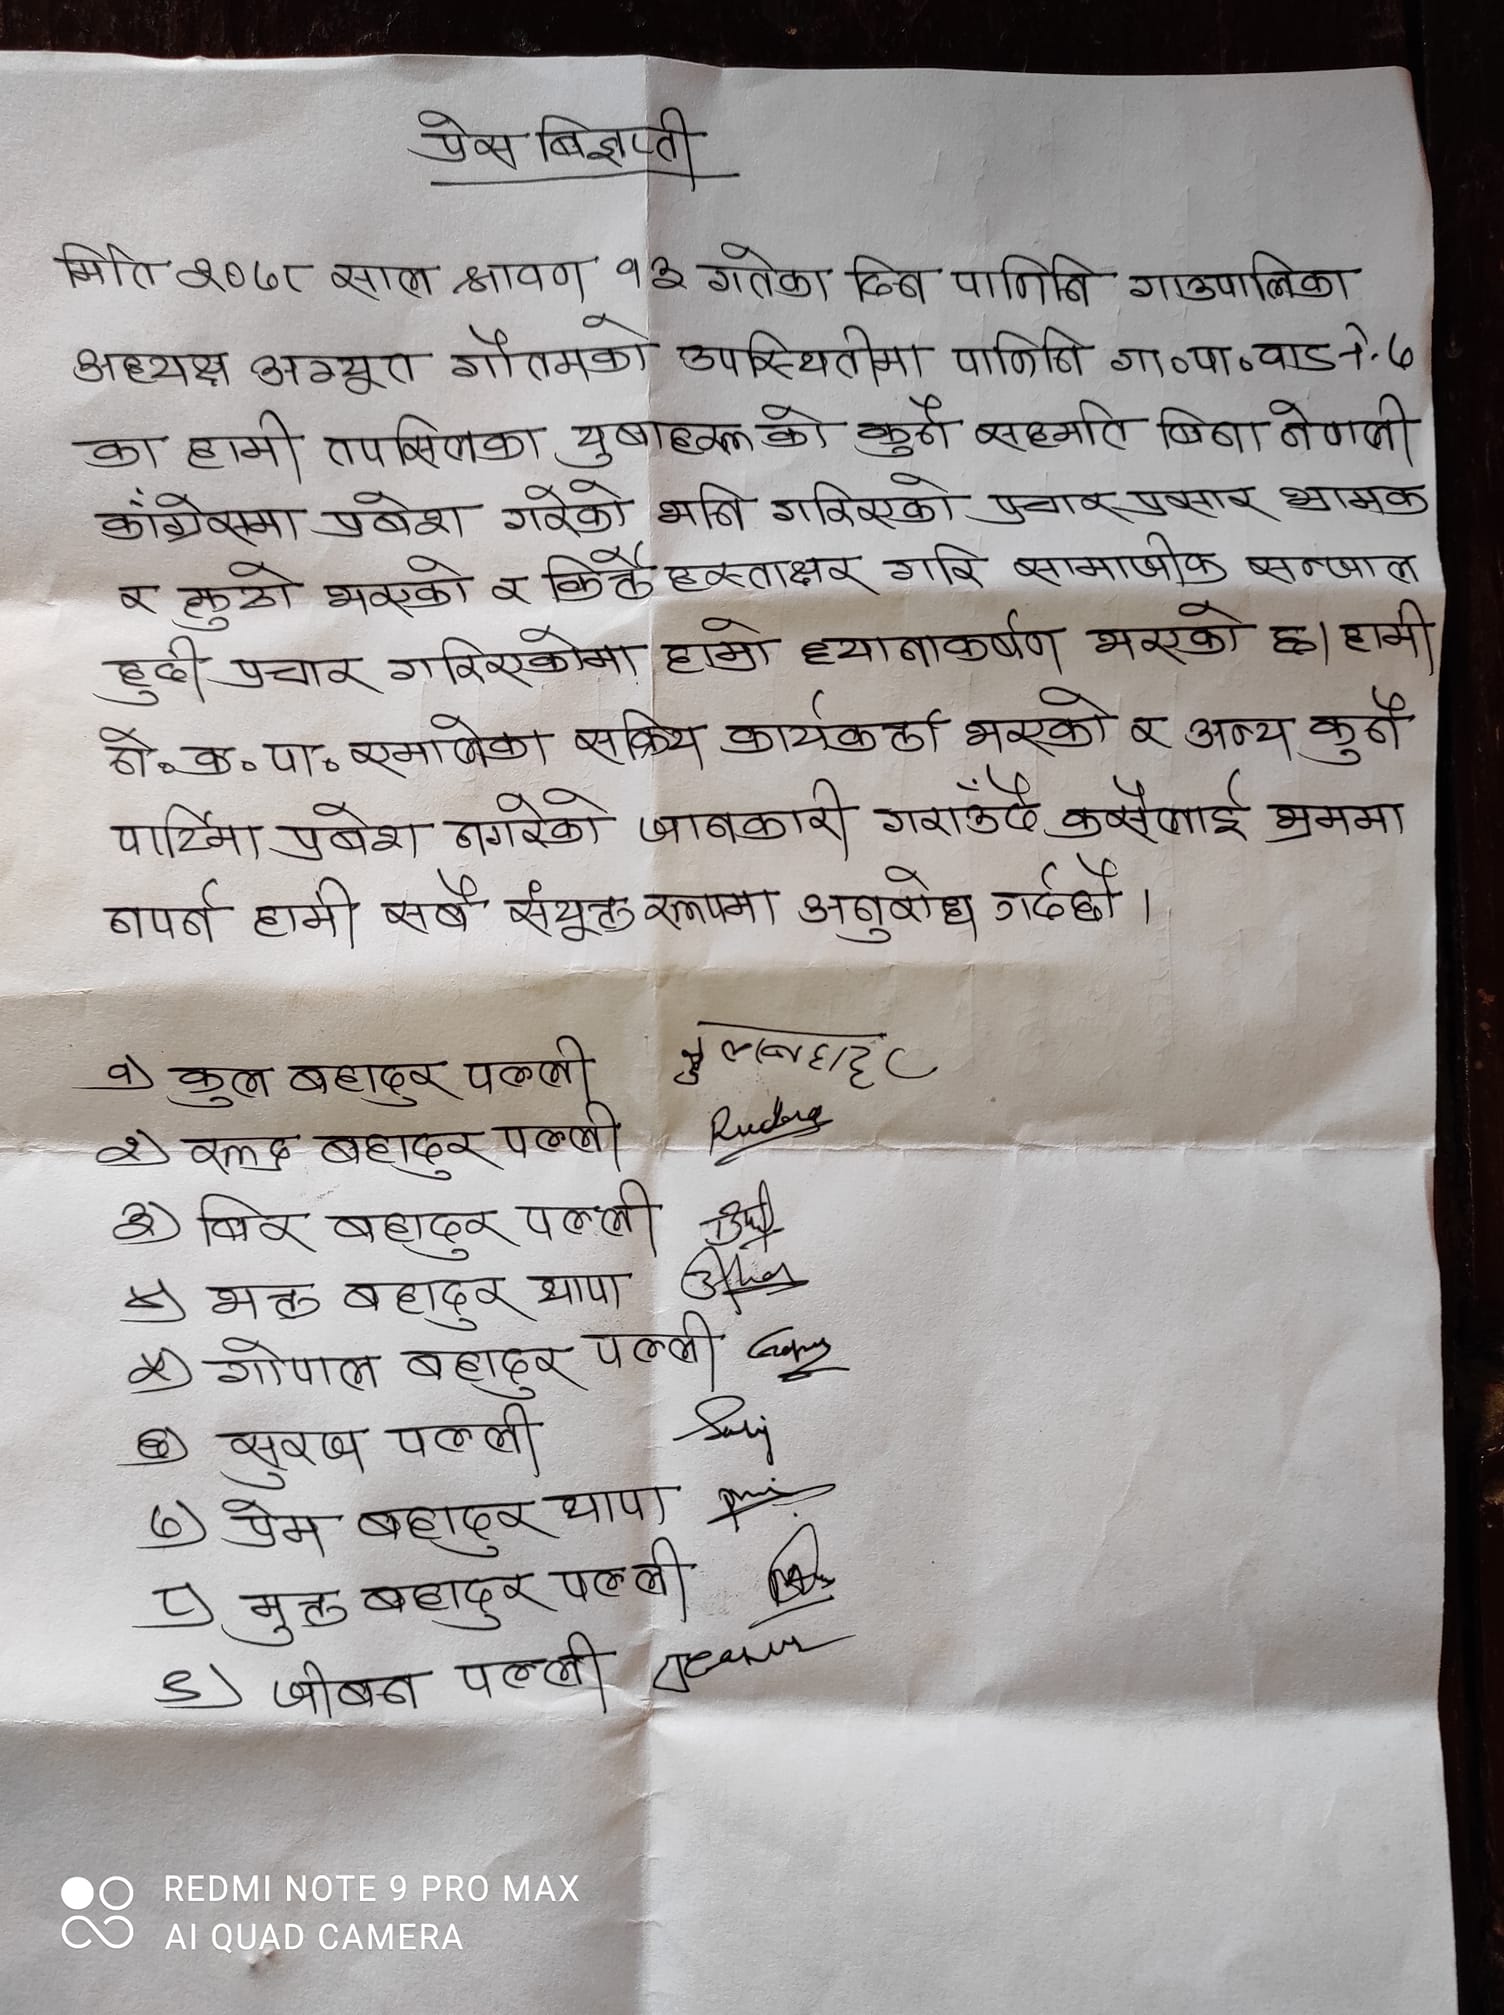 प्रेस बिज्ञप्ती
मिति २०७८ साल श्रावण १३ गतेका दिन पाणिनि गाउपालिका
अध्यक्ष अच्यूत गौतमको उपस्थितीमा पाणिनि गा०पा०वाड नं. ७
का हामी तपसिलका युबाहरू को कुनै सहमति बिना नेपाली
कांग्रेसमा प्रबेश गरेको भनि गरिएको प्रचार प्रसार भ्रामक
र झुठो भएको र किर्ते हस्ताक्षर गरि सामाजीक सन्जाल
हुदी प्रचार गरिएकोमा हाम्रो ध्यानाकर्षण भएको छ। हामी
ने. क. पा. एमालेका सक्रिय कार्यकर्ता भएको र अन्य कुनै
पार्टिमा प्रबेश नगरेको जानकारी गराउँदै कसैलाई भ्रममा
नपर्न हामी सबै संयूक्त रूपमा अनुबोध गर्दछौ।
१) कुल बहादुर पल्ली कुलबहादुर
२) रूद्र बहादुर पल्ली Rudra
३) बिर बहादुर पल्ली
४) भक्त बहादुर थापा
५) गोपाल बहादुर पल्ली
६) सुरज पल्ली
७) प्रेम बहादुर थापा
८) मुक्त बहादुर पल्ली
९) जीबन पल्ली
REDMI NOTE 9 PRO MAX
AI QUAD CAMERA